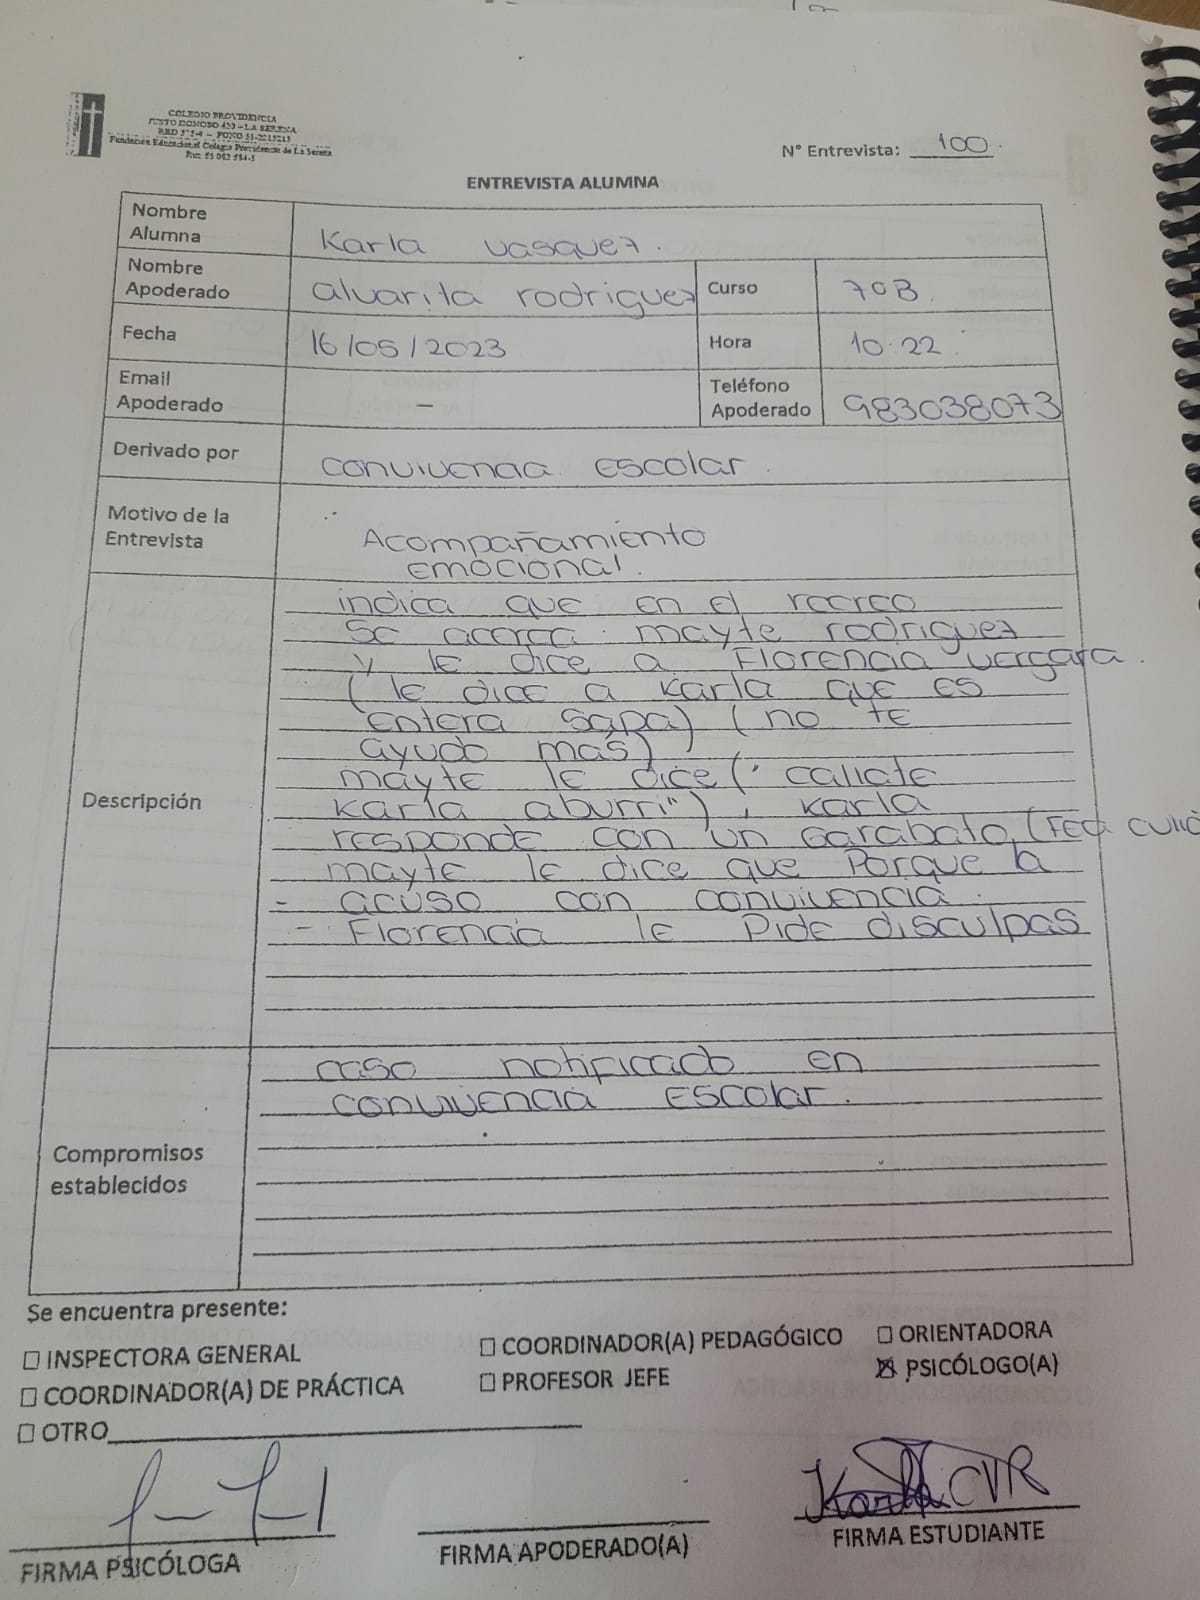 COLEGIO PROVIDENCIA
JUSTO DONOSO 420 - LA SERENA
Fundación Educacional Colegio Providencia de La Serena
N° Entrevista: 100
ENTREVISTA ALUMNA
Nombre Alumna Karla vasquez.
Nombre Apoderado alvarita rodriguez Curso 7°B.
Fecha 16/05/2023 Hora 10:22.
Email Apoderado - Teléfono Apoderado 983038073
Derivado por convivencia escolar.
Motivo de la Entrevista Acompañamiento
emocional.
Descripción
indica que en el recreo
se acerca mayte rodriguez
y le dice a Florencia vergara.
(le dice a Karla que es
entera sapa) (no te
ayudo mas)
mayte le dice (" callate
Karla aburri"), Karla
responde con un garabato (Fea culia
mayte le dice que porque la
- acuso con convivencia.
- Florencia le pide disculpas
Compromisos establecidos
caso notificado en
convivencia escolar.
Se encuentra presente:
☐ INSPECTORA GENERAL ☐ COORDINADOR(A) PEDAGÓGICO ☐ ORIENTADORA
☐ COORDINADOR(A) DE PRÁCTICA ☐ PROFESOR JEFE ☒ PSICÓLOGO(A)
☐ OTRO
Karla CVR
FIRMA PSICÓLOGA FIRMA APODERADO(A) FIRMA ESTUDIANTE